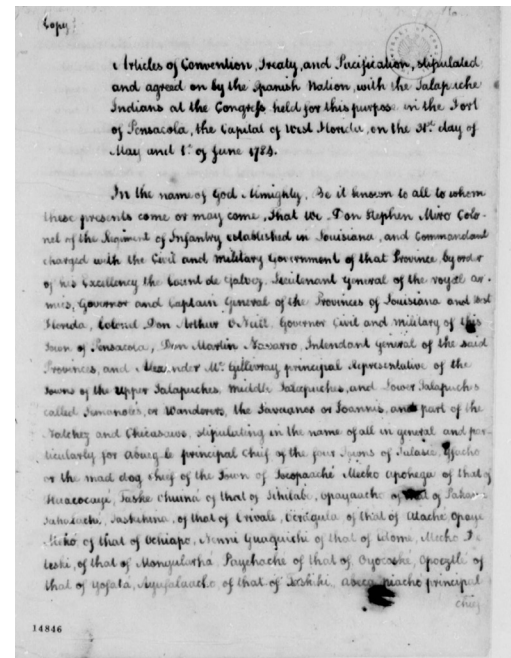 Copy.
Articles of Convention, Treaty, and Pacification, stipulated
and agreed on by the Spanish Nation, with the Talapuche
Indians at the Congress held for this purpose in the Fort
of Pensacola, the Capital of West Florida, on the 31st day of
May and 1st of June 1784.
In the name of God Almighty, Be it known to all to whom
these presents come or may come, That We Don Stephen Miro Colo-
nel of the Regiment of Infantry established in Louisiana, and Commandant
charged with the Civil and Military Government of that Province by order
of his Excellency the Count de Galvez, Lieutenant General of the royal ar-
mies, Governor and Captain General of the Provinces of Louisiana and West
Florida, Colonel Don Arthur O'Neill, Governor Civil and Military of this
Town of Pensacola, Don Martin Navarro, Intendant General of the said
Provinces, and Alexander Mc. Gillivray principal Representative of the
Towns of the Upper Talapuches, Middle Talapuches, and Lower Talapuches
called Simanoles, or Wanderers, the Savaanos or Joannis, and part of the
Natchez and Chicasaws, stipulating in the name of all in general and par-
ticularly for principal chief of the four Towns of
or the mad dog chief of the Town of Mecko of that of
of that of of that of
of that of of that of
of that of of that of Mecko
of that of of that of
that of of that of principal
chief
14846